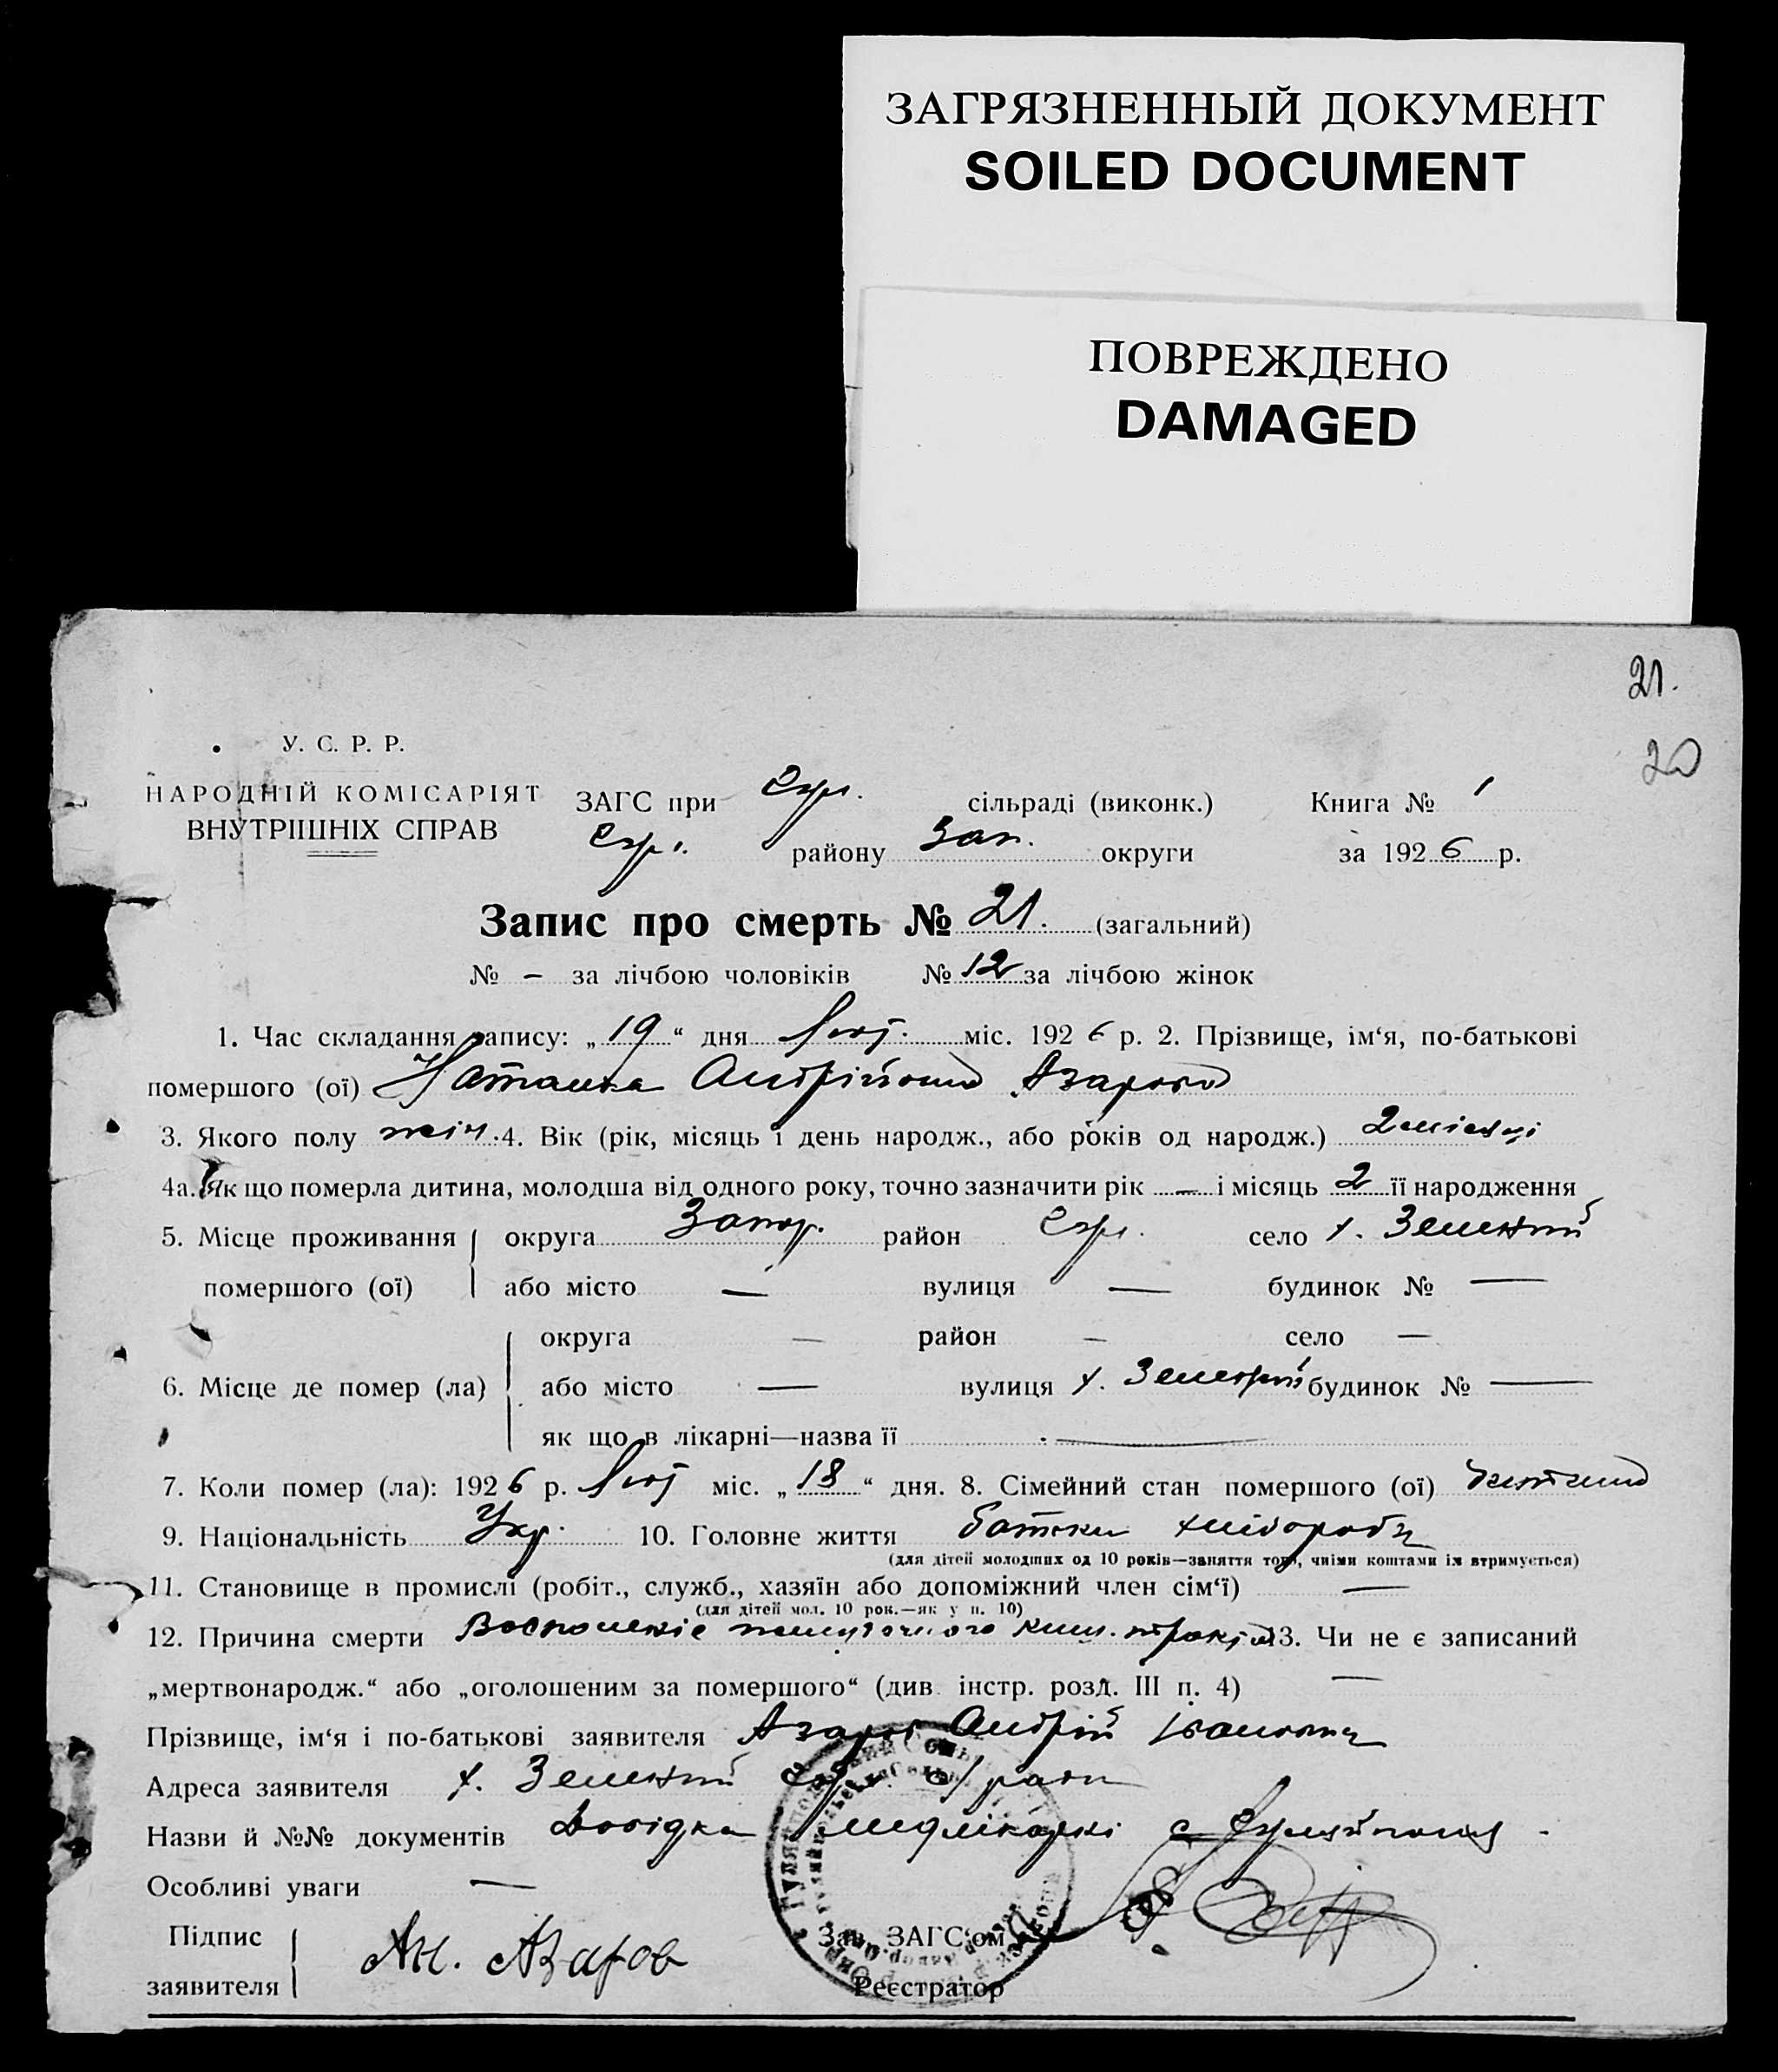 ЗАГРЯЗНЕННЫЙ ДОКУМЕНТ
SOILED DOCUMENT
ПОВРЕЖДЕНО
DAMAGED
21.
20
У. С. Р. Р.
НАРОДНІЙ КОМІСАРІЯТ
ВНУТРІШНІХ СПРАВ
ЗАГС при сільраді (виконк.) Книга № 1
району Зап. округи за 1926 р.
Запис про смерть № 21. (загальний)
№ – за лічбою чоловіків № 12 за лічбою жінок
1. Час складання запису: „19“ дня міс. 1926 р. 2. Прізвище, ім‘я, по-батькові
помершого (ої) Наталка Андріївна Азарова
3. Якого полу жін. 4. Вік (рік, місяць і день народж., або років од народж.) 2 місяці
4а. Як що померла дитина, молодша від одного року, точно зазначити рік — і місяць 2 її народження
5. Місце проживання округа Запор. район село х.
помершого (ої) або місто — вулиця — будинок № —
округа — район — село —
6. Місце де помер (ла) або місто — вулиця х. будинок № —
як що в лікарні—назва її —
7. Коли помер (ла): 1926 р. міс. „18“ дня. 8. Сімейний стан помершого (ої) дитина
9. Національність Укр. 10. Головне життя батьки хлібороби
(для дітей молодших од 10 років—заняття того, чиїми коштами їх втримується)
11. Становище в промислі (робіт., служб., хазяїн або допоміжний член сім‘ї) —
(для дітей мол. 10 рок.—як у п. 10)
12. Причина смерти киш. 13. Чи не є записаний
„мертвонародж.“ або „оголошеним за помершого“ (див. інстр. розд. III п. 4) —
Прізвище, ім‘я і по-батькові заявителя Азаров Андрій Іванович
Адреса заявителя х.
Назви й №№ документів Довідка с.
Особливі уваги —
Підпис
заявителя Ан. Азаров
Зав. ЗАГС‘ом
Реєстратор